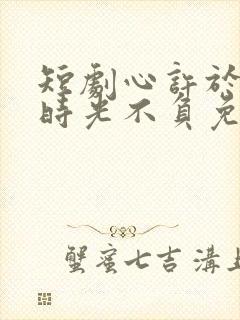 短劇心許於
時光不負免
蟹蜜七吉溝上